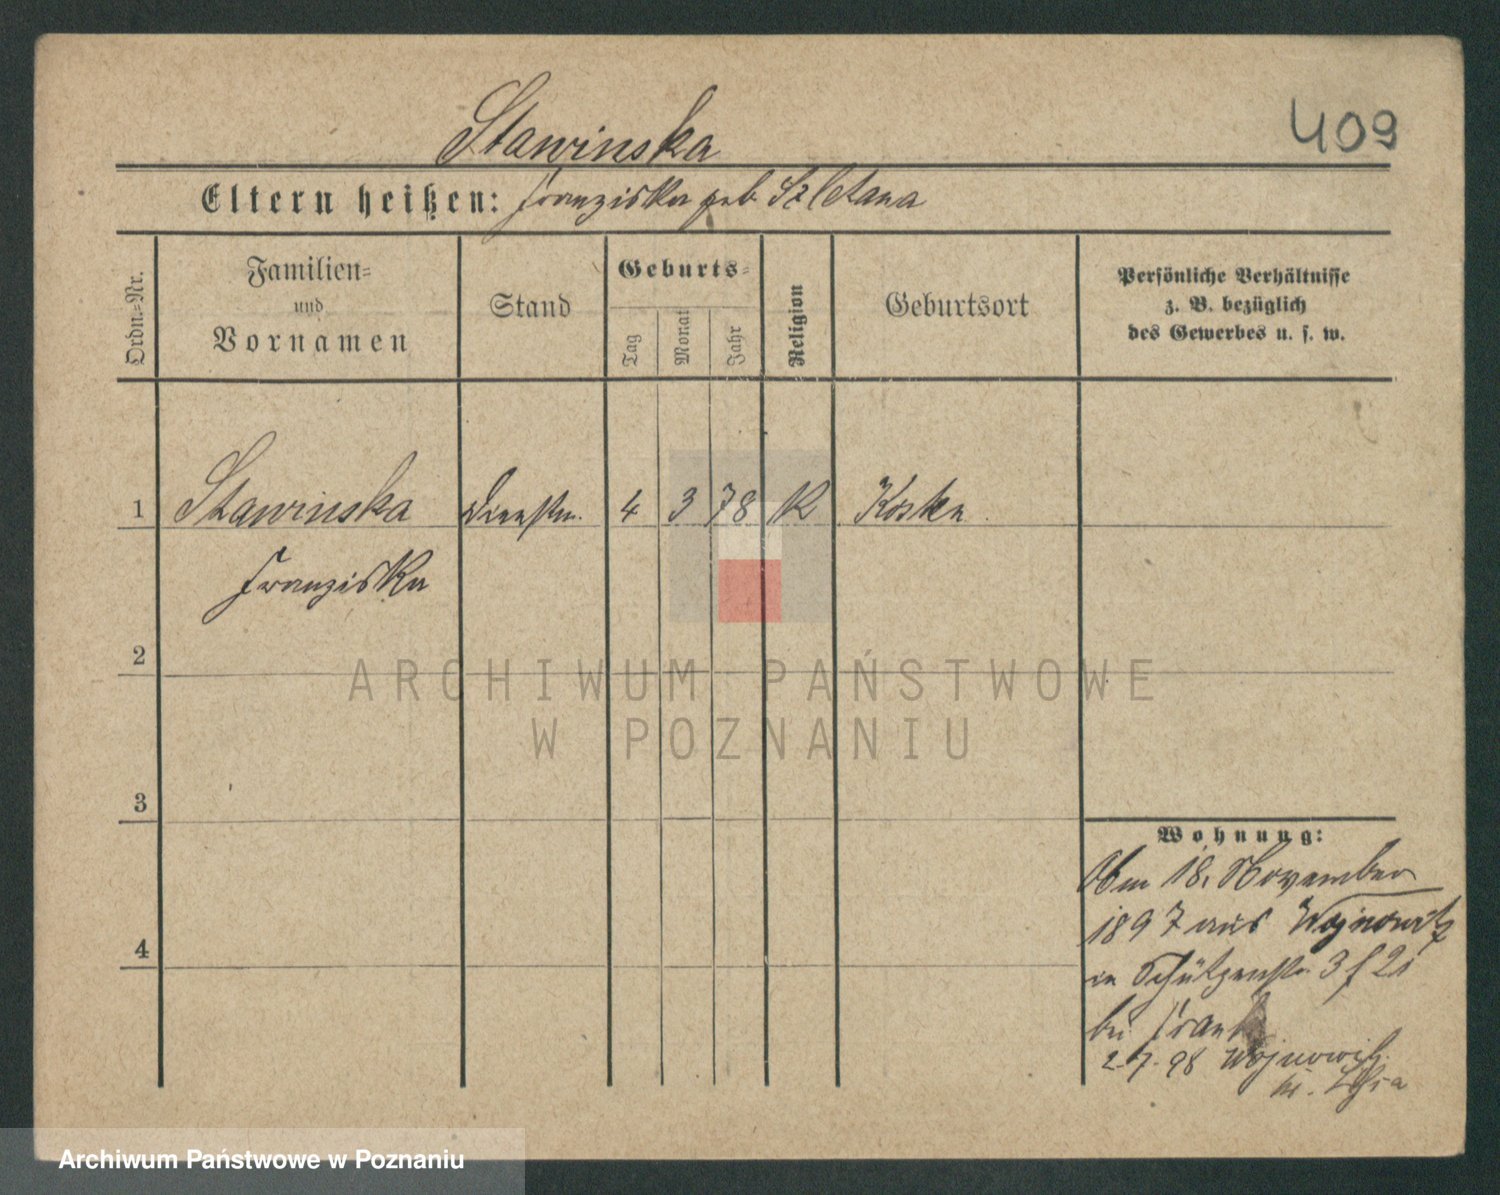 409
Stawinska
Eltern heißen: Franziska geb. Szletana
Ordn.-Nr.
Familien-
und
Vornamen
Stand
Geburts-
Tag
Monat
Jahr
Religion
Geburtsort
Persönliche Verhältnisse
z. B. bezüglich
des Gewerbes u. s. w.
1 Stawinska 4 3 78 K
Franziska
2
3
4
Wohnung:
18. November
1897 aus Wojnowitz
in Schützenstr. 3
bei
2.7.98 Wojnowitz
ARCHIWUM PAŃSTWOWE
W POZNANIU
Archiwum Państwowe w Poznaniu